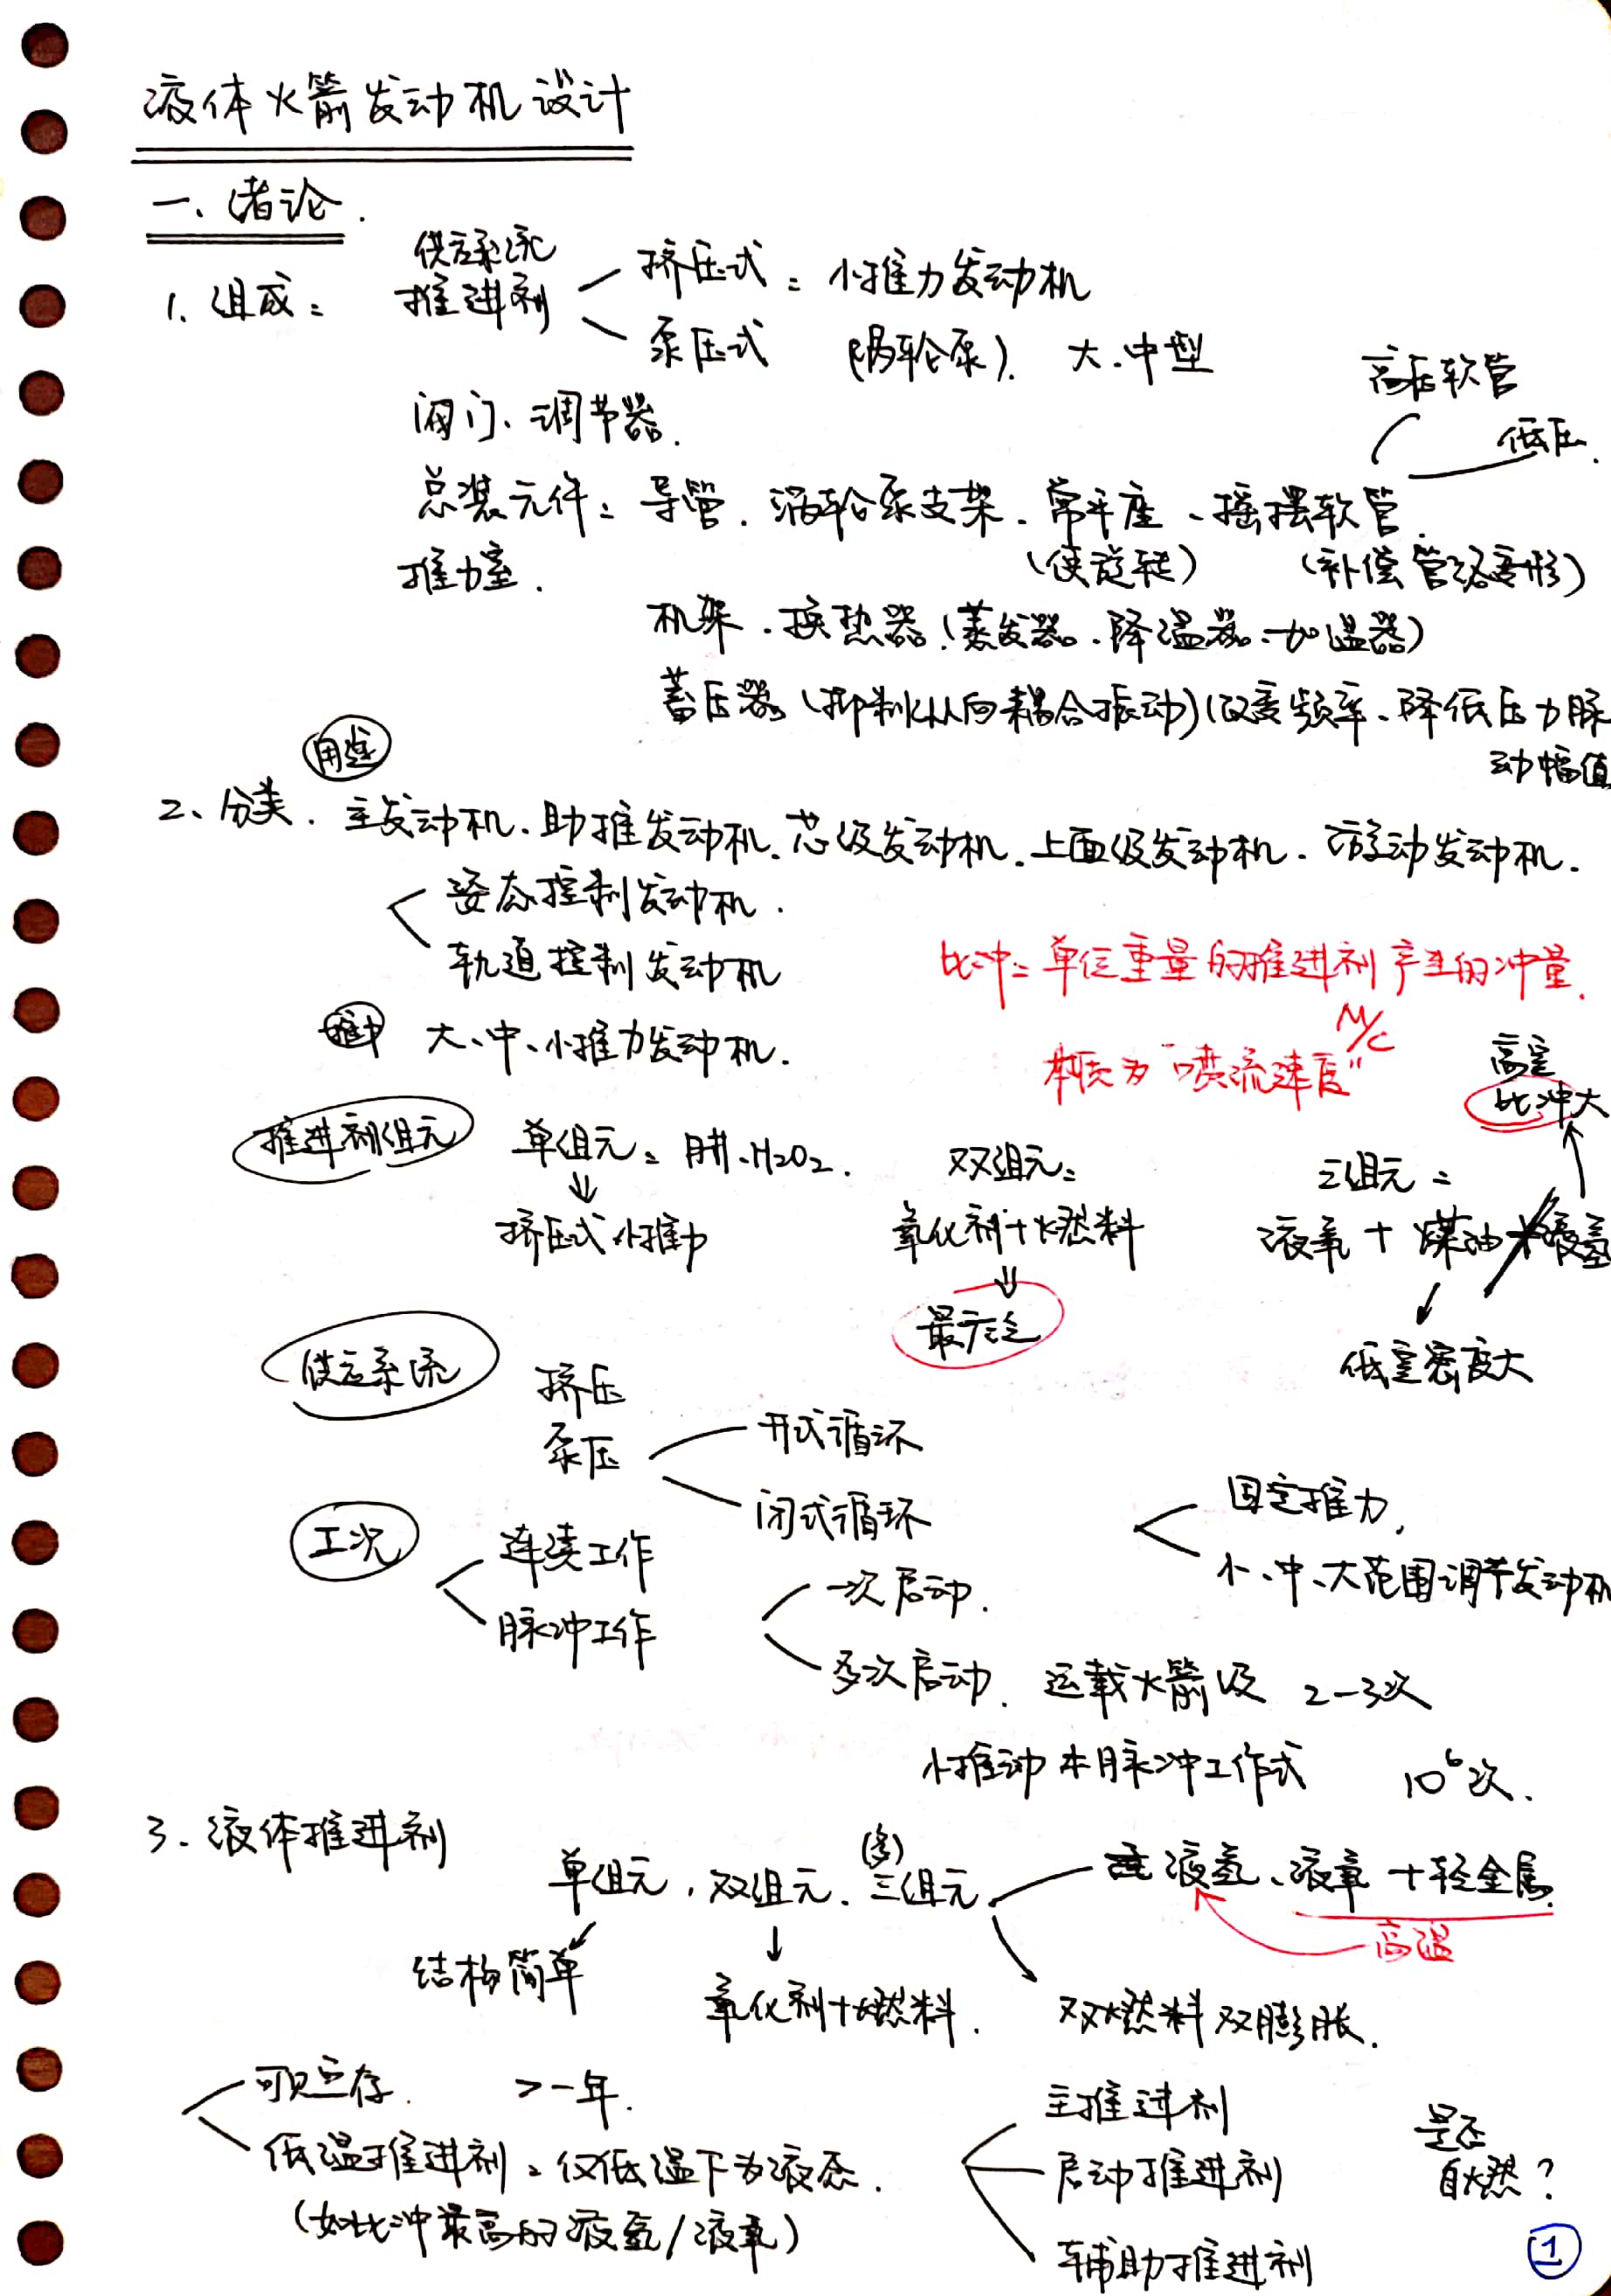 液体火箭发动机设计
一、绪论.
供应系统
1. 组成: 推进剂 挤压式: 小推力发动机
泵压式 (涡轮泵). 大.中型
高压软管
低压.
阀门、调节器.
总装元件: 导管. 涡轮泵支架. 常平座、摇摆软管.
(使旋转) (补偿管路变形)
推力室.
机架. 换热器(蒸发器.降温器.加温器)
蓄压器(抑制纵向耦合振动)(改变频率、降低压力脉
动幅值
用途
2、分类. 主发动机、助推发动机.芯级发动机.上面级发动机.游动发动机.
姿态控制发动机.
轨道控制发动机
比冲: 单位重量的推进剂产生的冲量.
大、中、小推力发动机.
本质为"喷流速度"
高空
比冲大
推进剂组元 单组元: 肼、H2O2. 双组元: 三组元:
⇓
挤压式小推力 氧化剂+燃料 液氧+煤油+液氢
⇓
最广泛
低空密度大
供应系统 挤压
泵压 开式循环
闭式循环
固定推力,
小、中、大范围调节发动机
工况 连续工作
脉冲工作
一次启动.
多次启动. 运载火箭级 2-3次
小推动 本脉冲工作式 10⁶次.
3. 液体推进剂
(多)
单组元, 双组元. 三组元 液氢、液氧+轻金属.
高温
结构简单
氧化剂+燃料. 双燃料双膨胀.
可贮存. >一年.
低温推进剂: 仅低温下为液态.
(如比冲最高的液氢/液氧)
主推进剂
启动推进剂
辅助推进剂
是否
自燃?
1